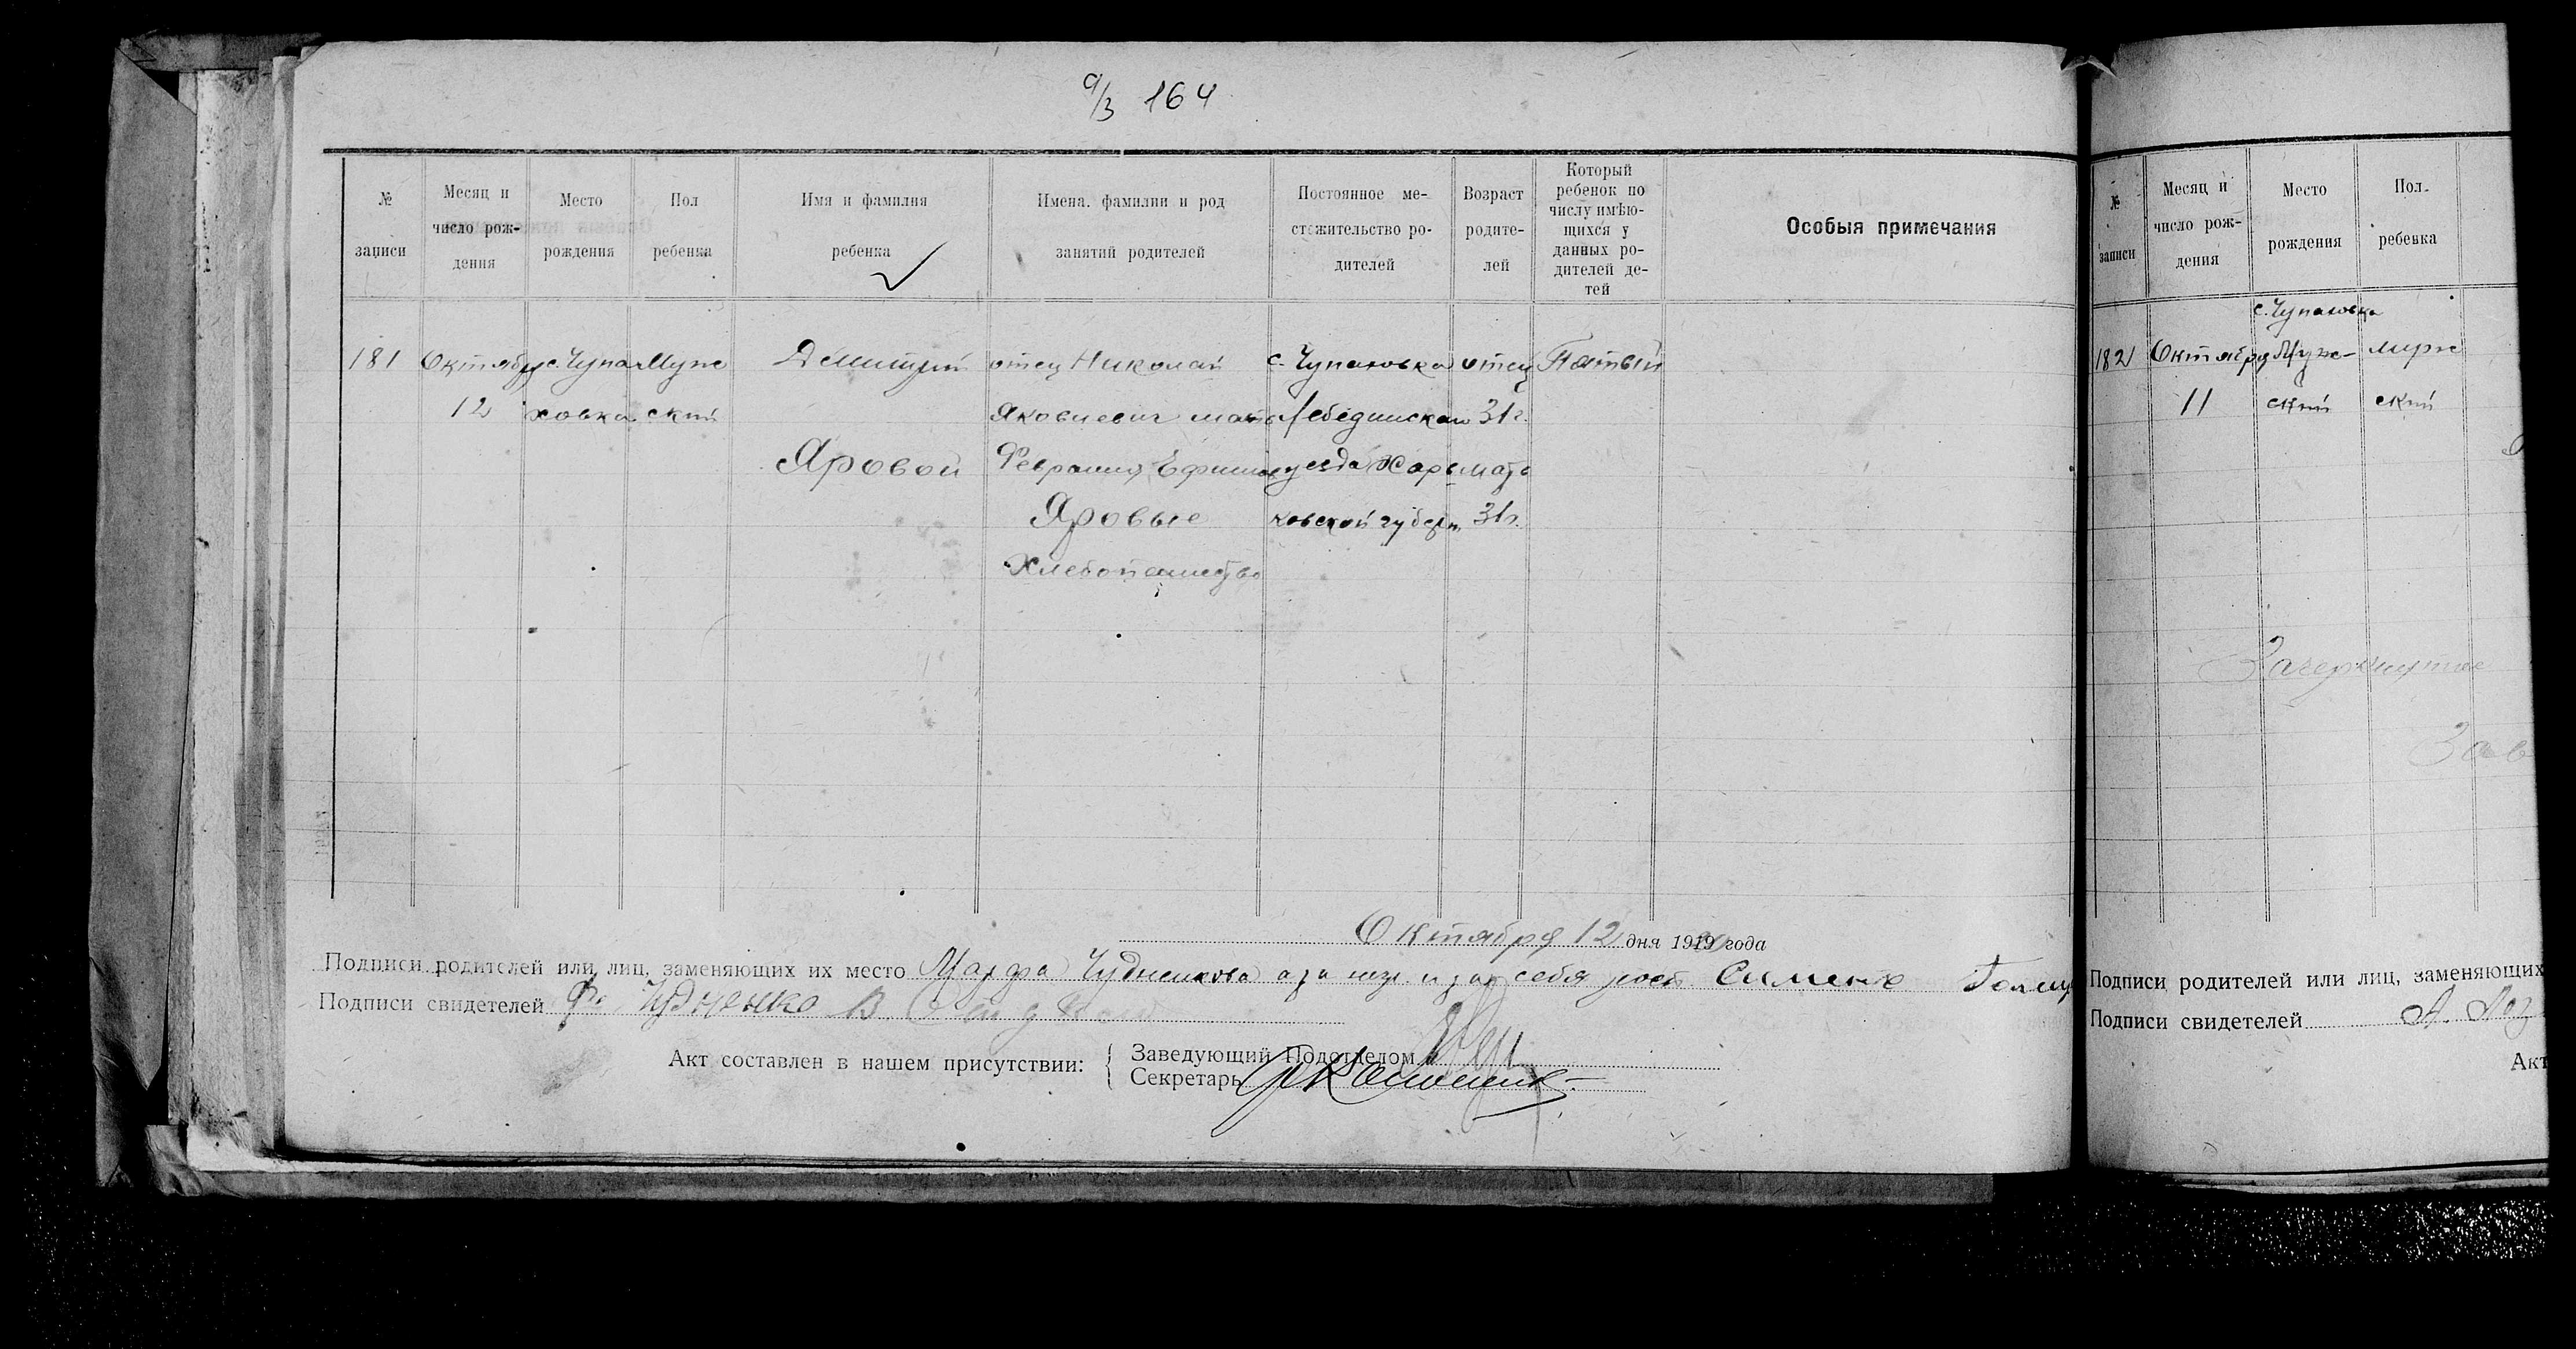 9/3 164
№ записи
Месяц и число рождения
Место рождения
Пол ребенка
Имя и фамилия ребенка
Имена. фамилии и род занятий родителей
Постоянное местожительство родителей
Возраст родителей
Который ребенок по числу имѣющихся у данных родителей детей
Особыя примечания
181
Октября
12
с. Чупа
ховка
Муж
ский
Демитрий
Яровой
отец Николай
Яковлевич мать
Ефимов
Яровые
Хлебопашество
с. Чупаховка
Лебединскаго
уезда Харь
ковской губерн
отец
31 г.
мать
31 г.
Пятый
Октября 12 дня 1919 года
Подписи родителей или лиц, заменяющих их место Марфа а за негр. и за себя росп Сименъ
Подписи свидетелей
Акт составлен в нашем присутствии:
Заведующий Подотделом
Секретарь
№ записи
Месяц и число рождения
Место рождения
Пол ребенка
с. Чупаховка
182
Октября
11
Муж-
ский
муж
ский
Зачеркнутое
Зав
Подписи родителей или лиц, заменяющих
Подписи свидетелей А. Лоз
Акт